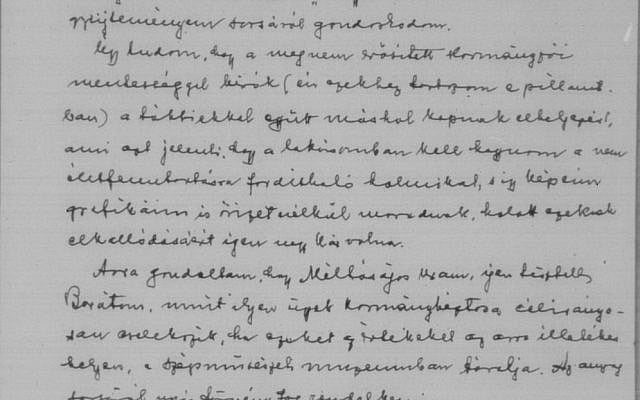 gyűjteményem sorsáról gondoskodom.
Úgy tudom, hogy a meg nem erősített kormányzói
mentességgel bírók (én ezekhez tartozom e pillanat-
ban) a többiekkel együtt máshol kapnak elhelyezést,
ami azt jelenti, hogy a lakásomban kell hagynom a nem
életfenntartásra fordítható holmikat, s így képeim
grafikáim is őrizet nélkül maradnak, holott ezeknek
elkallódásáért igen nagy kár volna.
Arra gondoltam, hogy Méltóságos Uram, igen tisztelt
Barátom, mint ilyen ügyek kormánybiztosa célirányo-
san cselekszik, ha ezeket az értékeket az arra illetékes
helyen, a Szépművészeti muzeumban tárolja. Az anyag
sorsáról